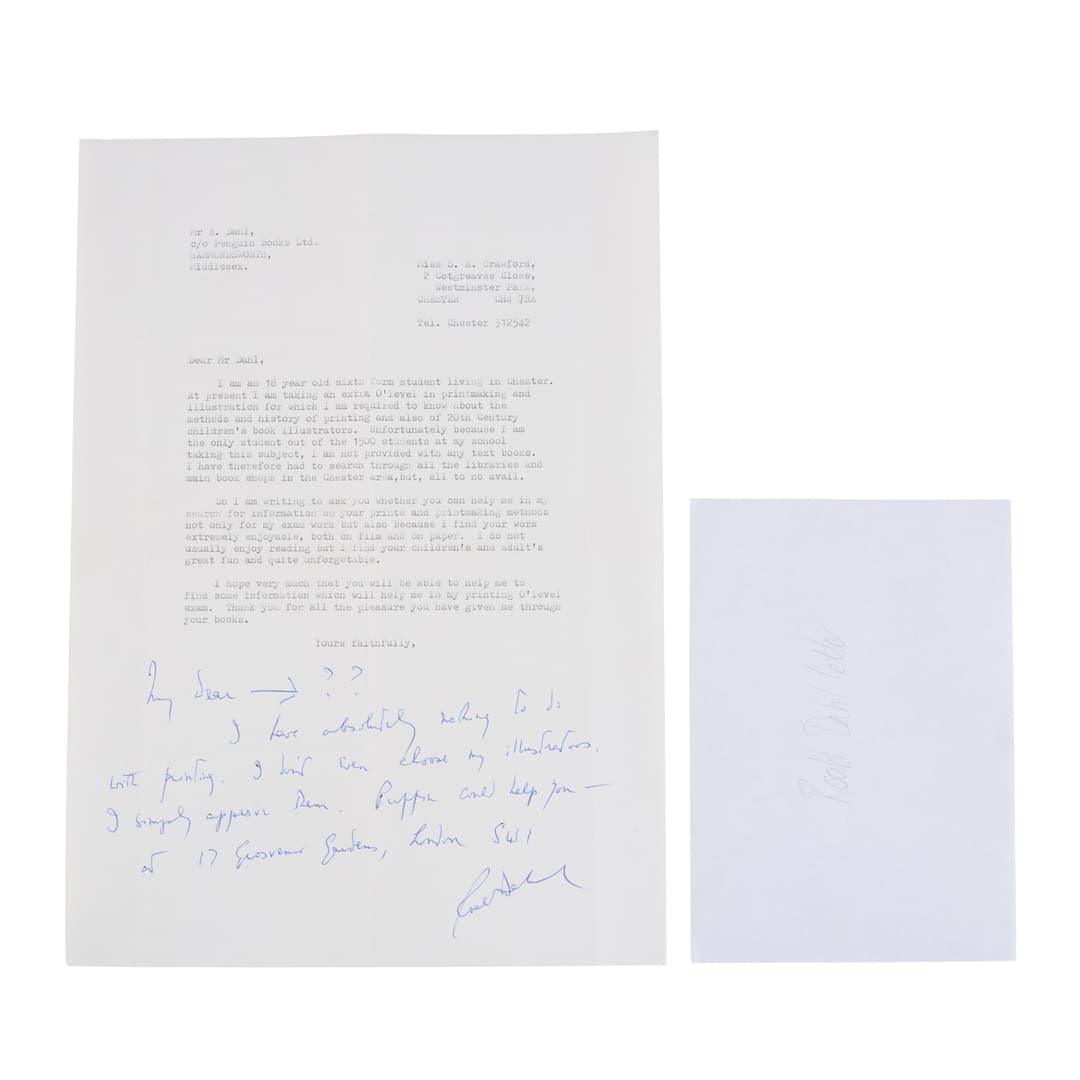 Mr R. Dahl,
c/o Penguin Books Ltd.
HARMONDSWORTH,
Middlesex.
Miss S. E. Crawford,
2 Cotgreaves Close,
Westminster Park,
CHESTER CH4 7RA
Tel. Chester 312542
Dear Mr Dahl,
I am an 18 year old sixth form student living in Chester.
At present I am taking an extra O'level in printmaking and
illustration for which I am required to know about the
methods and history of printing and also of 20th Century
children's book illustrators. Unfortunately because I am
the only student out of the 1500 students at my school
taking this subject, I am not provided with any text books.
I have therefore had to search through all the libraries and
main book shops in the Chester area,but, all to no avail.
So I am writing to ask you whether you can help me in my
search for information on your prints and printmaking methods
not only for my exam work but also because I find your work
extremely enjoyable, both on film and on paper. I do not
usually enjoy reading but I find your children's and adult's
great fun and quite unforgetable.
I hope very much that you will be able to help me to
find some information which will help me in my printing O'level
exam. Thank you for all the pleasure you have given me through
your books.
Yours faithfully,
My dear → ??
I have absolutely nothing to do
with printing. I don't even choose my illustrators.
I simply approve them. Puffin could help you —
at 17 Grosvenor Gardens, London SW1
Roald Dahl
Roald Dahl letter